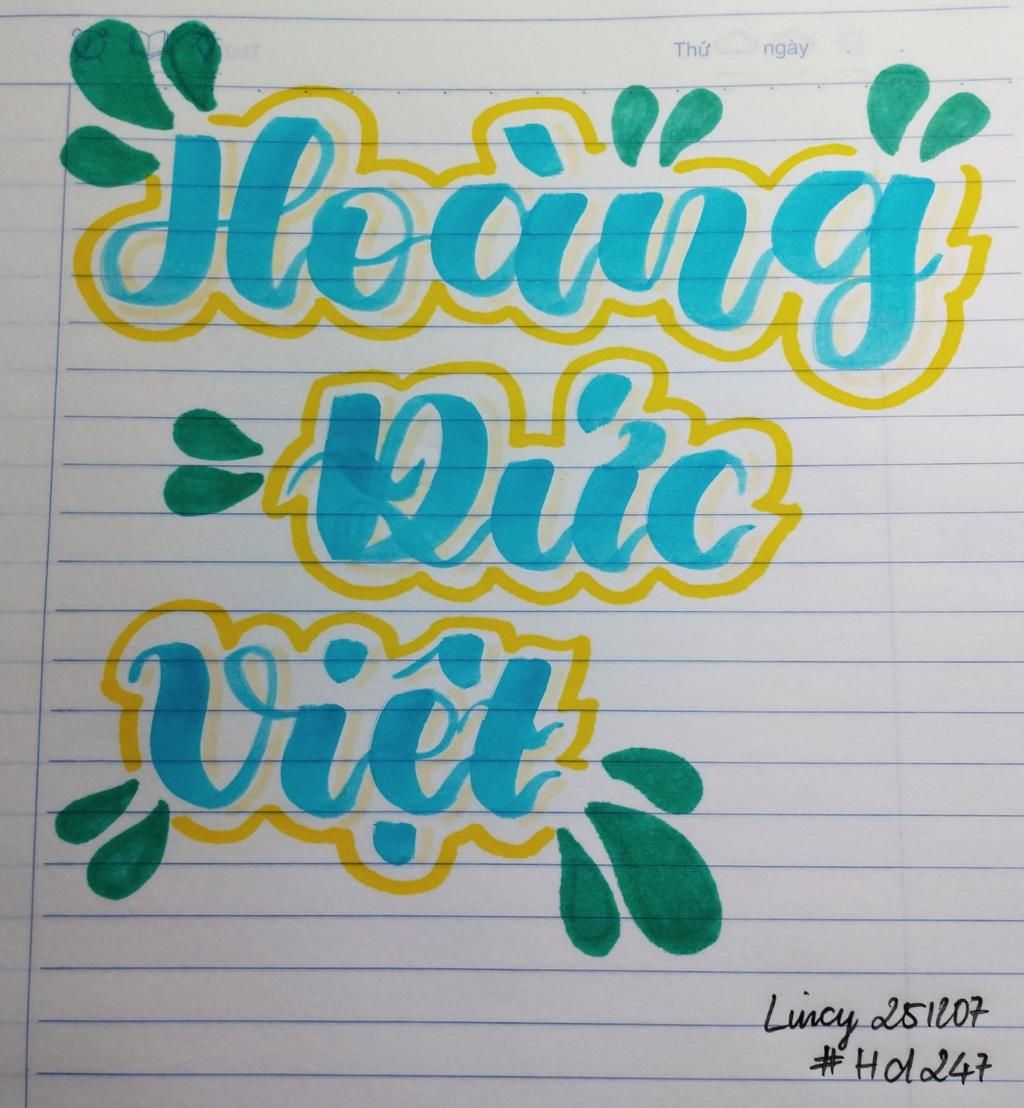 Thứ ngày
Hoàng
Đức
Việt
Lincy 251207
#Hd247